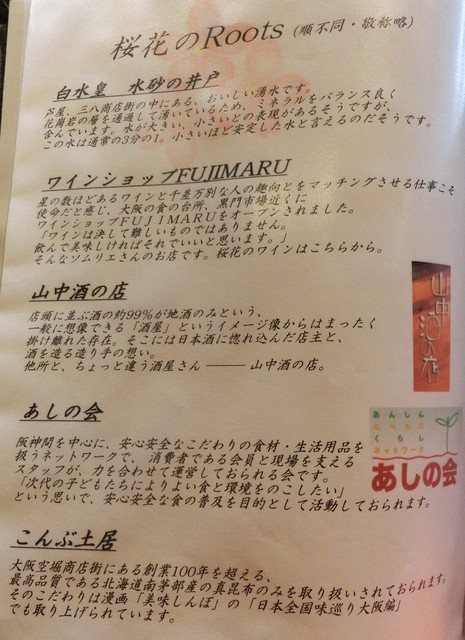 桜花のRoots（順不同・敬称略）
白水皇　水砂の井戸
芦屋、三八商店街の中にある、おいしい湧水です。
花崗岩の層を通過して湧いているため、ミネラルをバランス良く
含んでいます。水が大きい、小さいとの表現があるそうですが、
この水は通常の3分の1。小さいほど安定した水と言えるのだそうです。
ワインショップFUJIMARU
星の数ほどあるワインと千差万別な人の趣向とをマッチングさせる仕事こそ
使命だと感じ、大阪の食の台所、黒門市場近くに
ワインショップFUJIMARUをオープンされました。
「ワインは決して難しいものではありません。
飲んで美味しければそれでいいと思います。」
そんなソムリエさんのお店です。桜花のワインはこちらから。
山中酒の店
店頭に並ぶ酒の約99％が地酒のみという、
一般に想像できる「酒屋」というイメージ像からはまったく
掛け離れた存在。そこには日本酒に惚れ込んだ店主と、
酒を造る造り手の想い。
他所と、ちょっと違う酒屋さん ―― 山中酒の店。
山中酒の店
あしの会
阪神間を中心に、安心安全なこだわりの食材・生活用品を
扱うネットワークで、消費者である会員と現場を支える
スタッフが、力を合わせて運営しておられる会です。
「次代の子どもたちによりよい食と環境をのこしたい」
という思いで、安心安全な食の普及を目的として活動しておられます。
あんしん
たべもの
くらし
ネットワーク
あしの会
こんぶ土居
大阪空堀商店街にある創業100年を超える、
最高品質である北海道南茅部産の真昆布のみを取り扱いされております。
そのこだわりは漫画「美味しんぼ」の「日本全国味巡り大阪編」
でも取り上げられています。